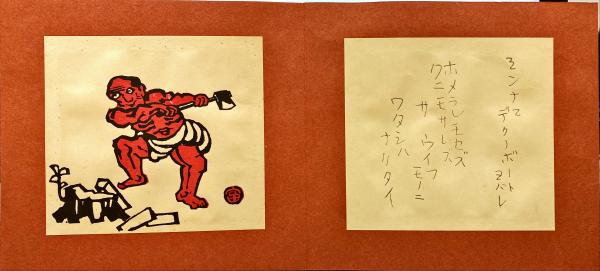 ミンナニ
デクノボート
ヨバレ
ホメラレモセズ
クニモサレズ
サウイフ
モノニ
ワタシハ
ナリタイ